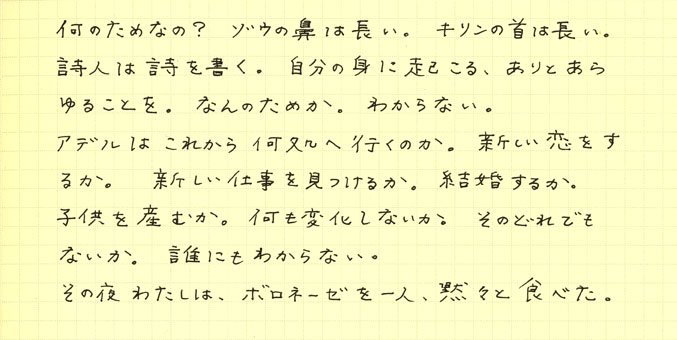 何のためなの？ ゾウの鼻は長い。 キリンの首は長い。
詩人は詩を書く。 自分の身に起こる、ありとあら
ゆることを。 なんのためか。 わからない。
アデルはこれから何処へ行くのか。 新しい恋をす
るか。 新しい仕事を見つけるか。 結婚するか。
子供を産むか。 何も変化しないか。 そのどれでも
ないか。 誰にもわからない。
その夜わたしは、ボロネーゼを一人、黙々と食べた。